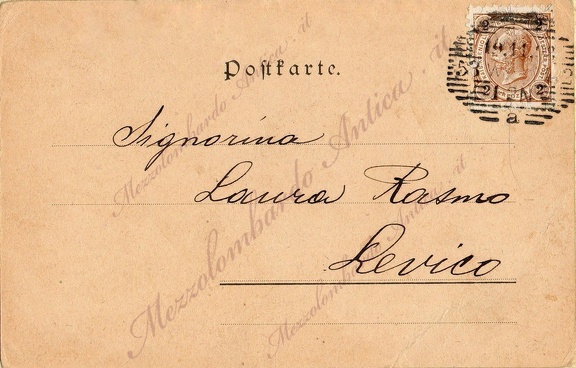 Postkarte.
Signorina
Laura Rasmo
Levico
2 2
2 2
a
Mezzolombardo Antica . it
Mezzolombardo Antica . it
Mezzolombardo Antica . it